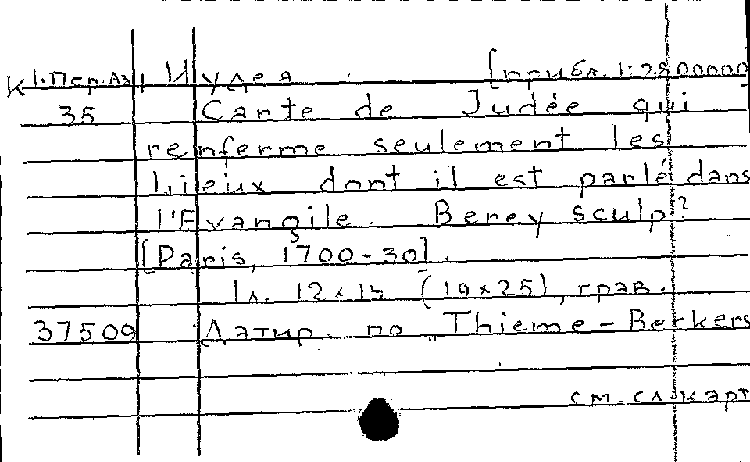 К 1.Пер.Аз. Иудея. [прибл. 1:2800000
35 Carte de Judée qui
renferme seulement les
Lieux dont il est parlé dans
l'Evangile. Berey sculp?
[Paris, 1700-30].
1л. (19×25), грав.
37509 Датир. по „Thieme-Beckers
см. сл. карт